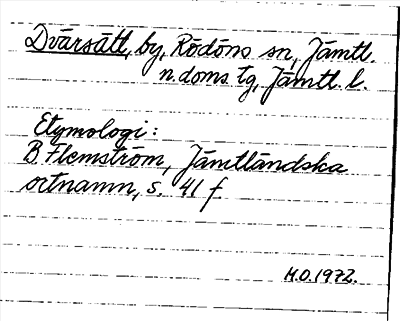 Dvärsätt, by, Rödöns sn, Jämtl.
n. doms tg, Jämtl. l.
Etymologi:
B. Flemström, Jämtländska
ortnamn, s. 41 f.
M.O. 1972.